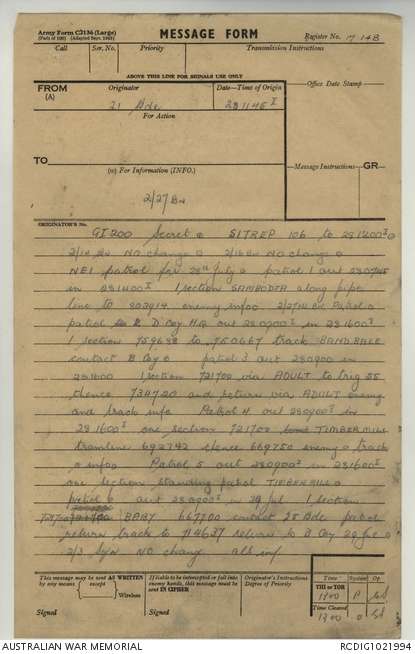 Army Form C2136 (Large)
MESSAGE FORM
Register No. 17 14B
(Pads of 100) (Adapted Sept. 1942)
Call Ser. No. Priority Transmission Instructions
ABOVE THIS LINE FOR SIGNALS USE ONLY
FROM
(A)
Originator Date—Time of Origin
Office Date Stamp
21 Bde 281145 I
For Action
TO
(W) For Information (INFO.)
Message Instructions GR
2/27 Bn
ORIGINATOR'S No.
GI200 Secret @ SITREP 106 to 281200 I @
2/14 Bn NO change @ 2/16 Bn NO change @
NEI patrol for 28th July @ patrol 1 out 280745
in 281400 I 1 section SAMBODJA along pipe
line to 802914 enemy info @ 2/27 Bn Patrol @
patrol 2 D Coy HQ out 280900 I in 281600 I
1 section 759688 to 750667 track
contact B Coy @ patrol 3 out 280900 in
281600 1 section 721702 via ADULT to trig 55
thence 734720 and return via ADULT enemy
and track info Patrol 4 out 280900 I in
281600 I one section 721702 TIMBER MILL
tramline 692742 thence 669750 enemy @ track
@ info @ Patrol 5 out 280900 I in 281600 I
one section standing patrol TIMBER MILL @
patrol 6 out 280900 I in 29 Jul 1 section
BABY 667700 contact 25 Bde patrol
return track to 714637 return to B Coy 29 Jul @
2/3 NO change all inf
This message may be sent AS WRITTEN
by any means except Wireless
If liable to be intercepted or fall into
enemy hands, this message must be
sent IN CIPHER
Originator's Instructions
Degree of Priority
Time System Op
THI or TOR
Time Cleared
Signed Signed
AUSTRALIAN WAR MEMORIAL RCDIG1021994